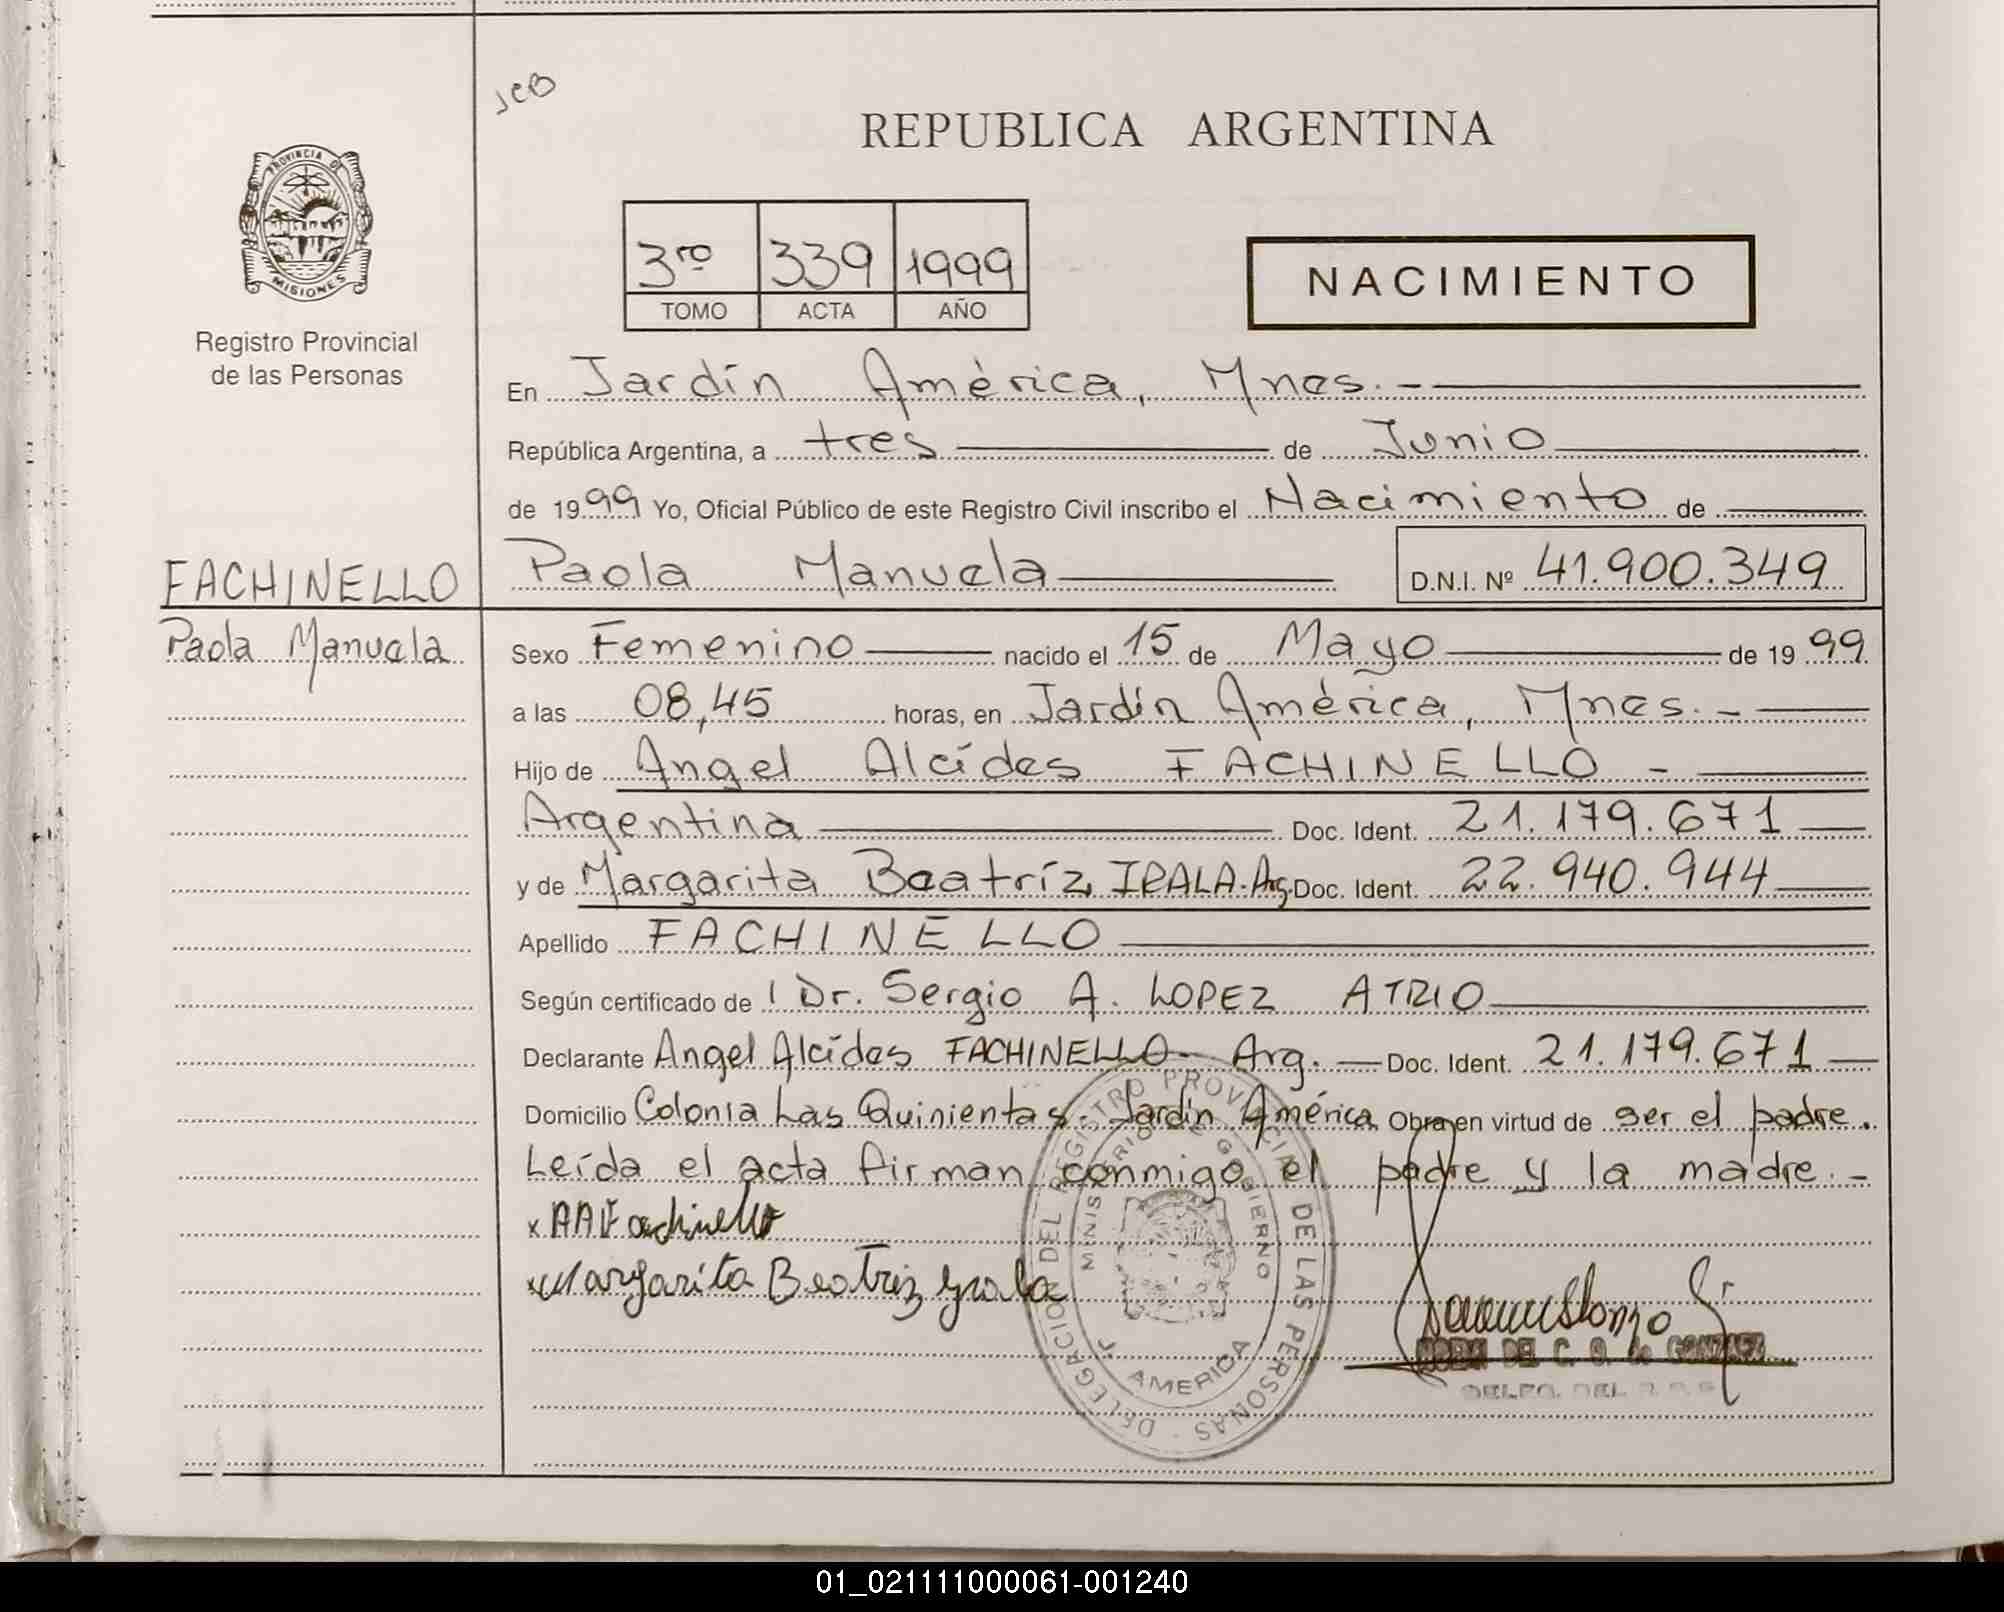 JCB
REPUBLICA ARGENTINA
PROVINCIA DE
MISIONES
Registro Provincial
de las Personas
3ro 339 1999
TOMO ACTA AÑO
NACIMIENTO
En Jardín América, Mnes. -
República Argentina, a tres de Junio
de 1999 Yo, Oficial Público de este Registro Civil inscribo el Nacimiento de
FACHINELLO
Paola Manuela
Paola Manuela D.N.I. Nº 41.900.349
Sexo Femenino nacido el 15 de Mayo de 1999
a las 08,45 horas, en Jardín América, Mnes. -
Hijo de Angel Alcídes FACHINELLO -
Argentina Doc. Ident. 21.179.671
y de Margarita Beatríz IRALA. Arg. Doc. Ident. 22.940.944
Apellido FACHINELLO
Según certificado de Dr. Sergio A. LOPEZ ATRIO
Declarante Angel Alcídes FACHINELLO - Arg. Doc. Ident. 21.179.671
Domicilio Colonia Las Quinientas - Jardín América Obra en virtud de ser el padre.
Leída el acta firman conmigo el padre y la madre. -
x AAFachinello
x Margarita Beatriz Yrala
DELEGACION DEL REGISTRO PROVINCIAL DE LAS PERSONAS
MINISTERIO DE GOBIERNO
J. AMERICA
DEL C. G. de GONZALEZ
01_021111000061-001240